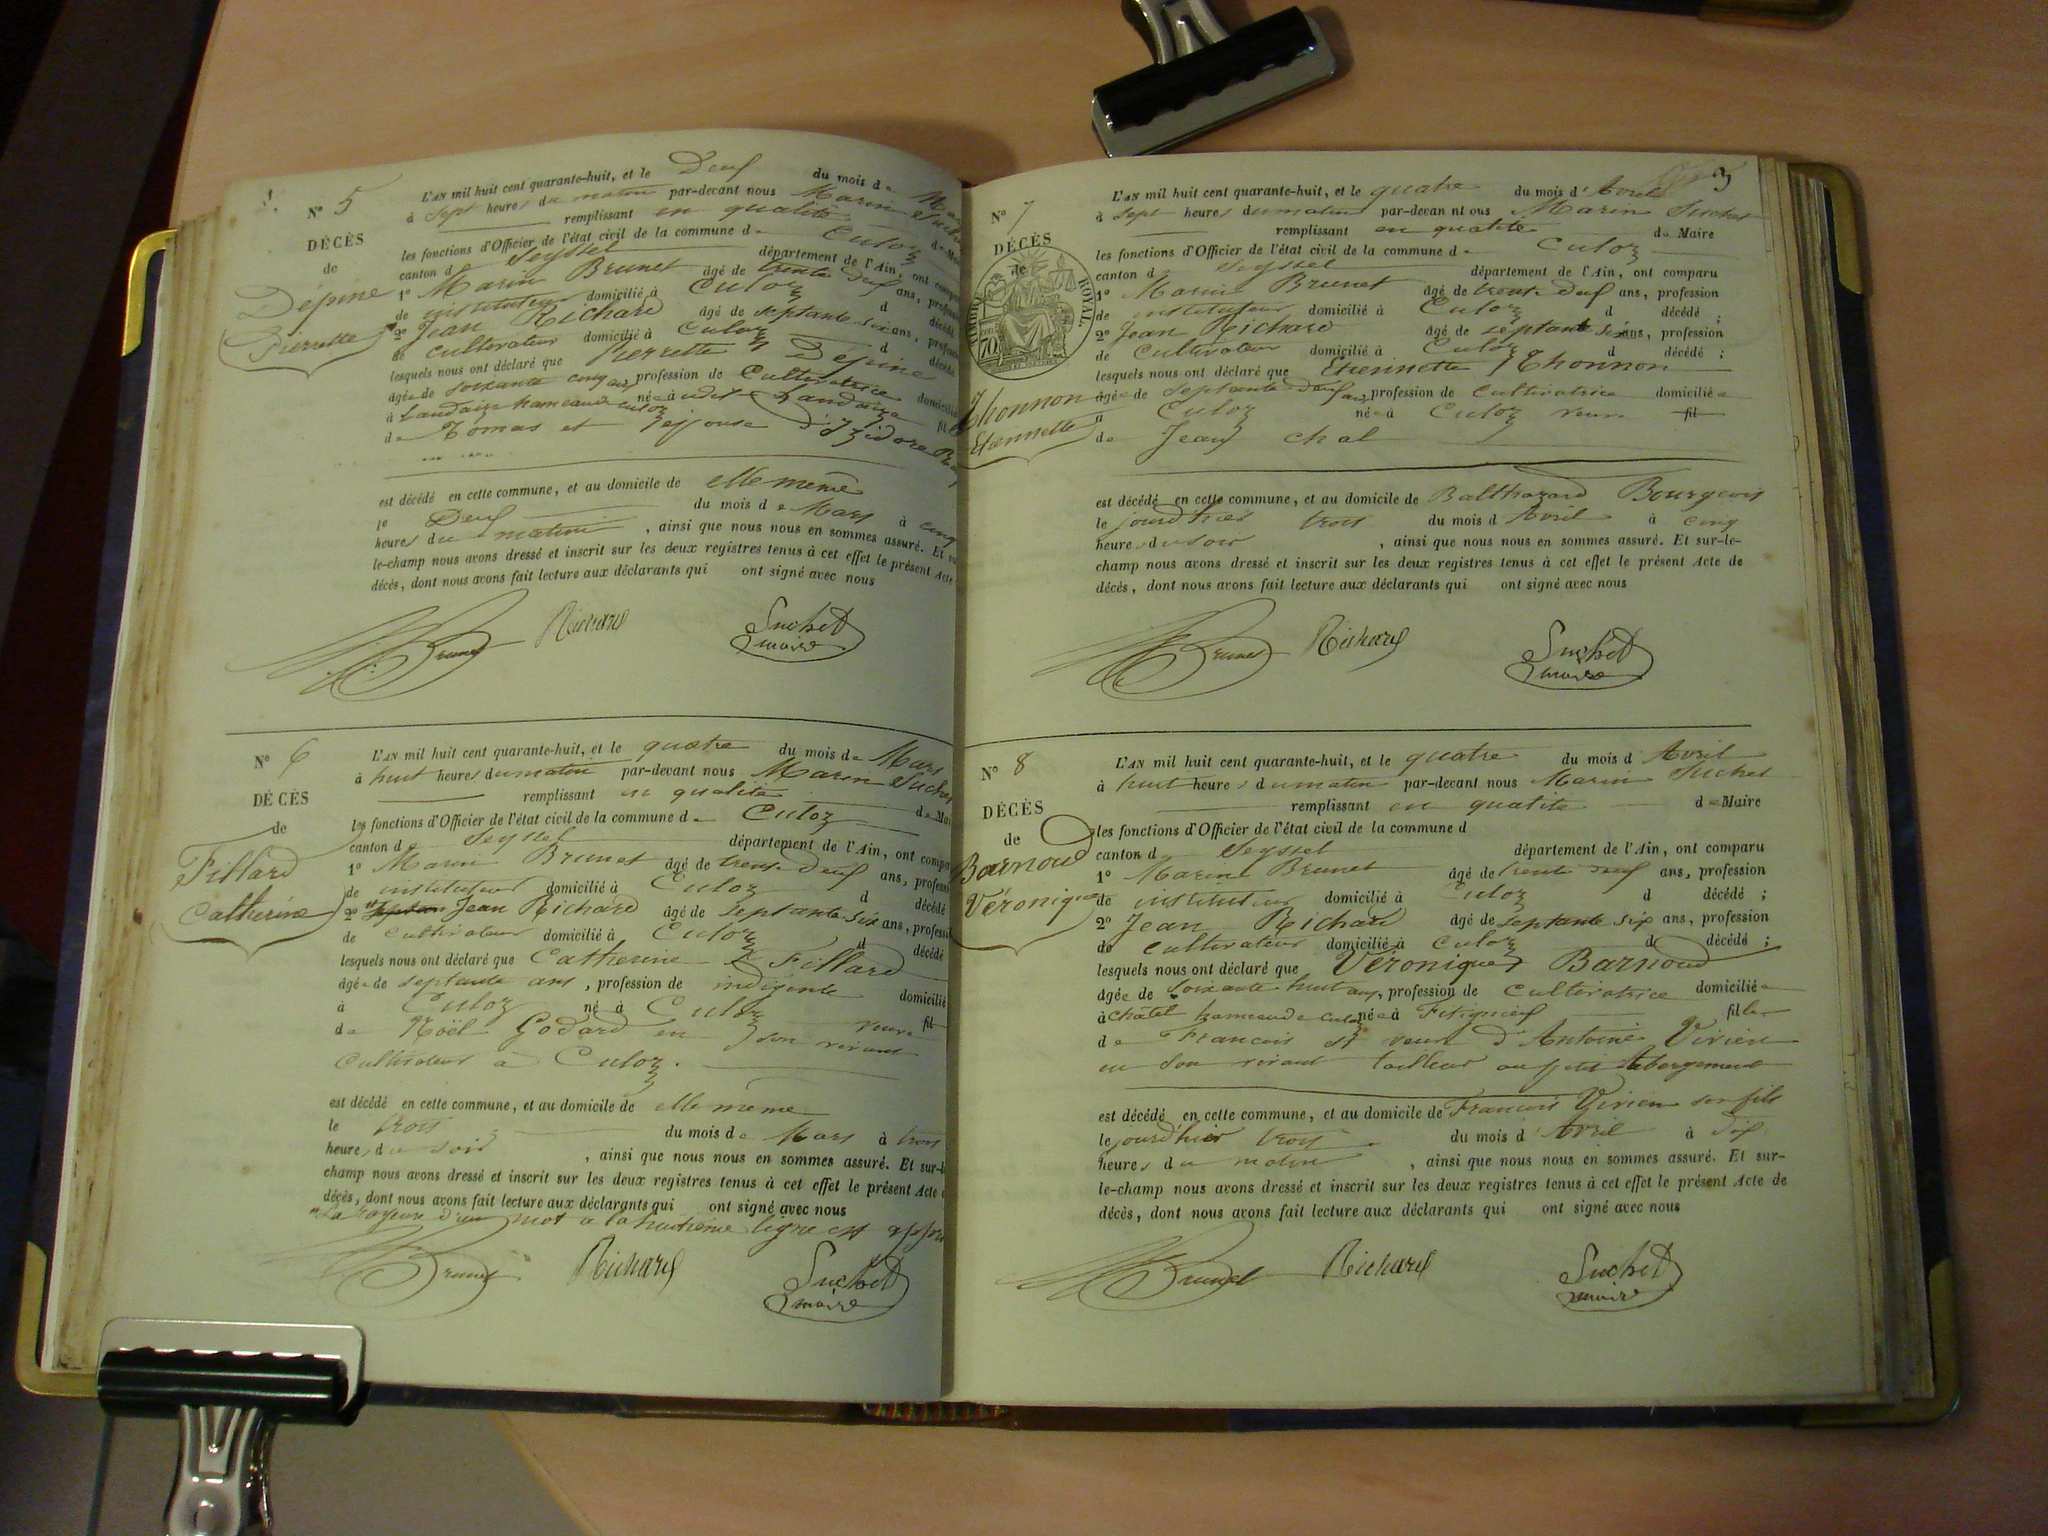 N° 5
DÉCÈS
de
Dépine
Pierrette
L'AN mil huit cent quarante-huit, et le Deux du mois de
à sept heures du matin par-devant nous Marin Suchet
remplissant en qualité de Maire
les fonctions d'Officier de l'état civil de la commune de Culoz
canton de Seyssel département de l'Ain, ont comparu
1° Marin Brunet âgé de trente deux ans, profession
de instituteur domicilié à Culoz d décédé
2° Jean Richard âgé de septante six ans, profession
de cultivateur domicilié à Culoz d décédé
lesquels nous ont déclaré que Pierrette Dépine
âgée de soixante cinq ans profession de Cultivatrice domiciliée
à Landaize hameau de culoz née à udit Landaize fil
de Tomas et épouse d'Izidore
est décédé en cette commune, et au domicile de elle même
le Deux du mois de Mars à cinq
heures du matin, ainsi que nous nous en sommes assuré. Et sur
le-champ nous avons dressé et inscrit sur les deux registres tenus à cet effet le présent Acte
décès, dont nous avons fait lecture aux déclarants qui ont signé avec nous
Brunet Richard Suchet
maire
N° 6
DÉCÈS
de
Fillard
Catherine
L'AN mil huit cent quarante-huit, et le quatre du mois de Mars
à huit heures du matin par-devant nous Marin Suchet
remplissant en qualité de Maire
les fonctions d'Officier de l'état civil de la commune de Culoz
canton de Seyssel département de l'Ain, ont comparu
1° Marin Brunet âgé de trente deux ans, profession
de instituteur domicilié à Culoz d décédé
2° Jean Richard âgé de septante six ans, profession
de cultivateur domicilié à Culoz d décédé
lesquels nous ont déclaré que Catherine Fillard
âgée de septante ans, profession de indigente domiciliée
à Culoz né à Culoz veuve fil
de Noël Godard en son vivant
Cultivateur à Culoz.
est décédé en cette commune, et au domicile de elle même
le trois du mois de Mars à trois
heures du soir, ainsi que nous nous en sommes assuré. Et sur-le
champ nous avons dressé et inscrit sur les deux registres tenus à cet effet le présent Acte
décès, dont nous avons fait lecture aux déclarants qui ont signé avec nous
La rayeure d'un mot a la huitième ligne est
Brunet Richard Suchet
maire
3
N° 7
DÉCÈS
de
TIMBRE ROYAL
70
Thonnon
Etiennette
L'AN mil huit cent quarante-huit, et le quatre du mois d'Avril
à sept heures du matin par-devan nt ous Marin Suchet
remplissant en qualité de Maire
les fonctions d'Officier de l'état civil de la commune de Culoz
canton de Seyssel département de l'Ain, ont comparu
1° Marin Brunet âgé de trente deux ans, profession
de instituteur domicilié à Culoz d décédé ;
2° Jean Richard âgé de septante six ans, profession
de Cultivateur domicilié à Culoz d décédé ;
lesquels nous ont déclaré que Etiennette Thonnon
âgée de septante deux ans profession de cultivatrice domiciliée
à Culoz née à Culoz veuve fil
de Jean chal
est décédé en cette commune, et au domicile de Balthazard Bourgeois
le jourd'hier trois du mois d Avril à cinq
heures du soir, ainsi que nous nous en sommes assuré. Et sur-le-
champ nous avons dressé et inscrit sur les deux registres tenus à cet effet le présent Acte de
décès, dont nous avons fait lecture aux déclarants qui ont signé avec nous
Brunet Richard Suchet
maire
N° 8
DÉCÈS
de
Barnoud
Véronique
L'AN mil huit cent quarante-huit, et le quatre du mois d Avril
à huit heures du matin par-devant nous Marin Suchet
remplissant en qualité de Maire
les fonctions d'Officier de l'état civil de la commune d
canton de Seyssel département de l'Ain, ont comparu
1° Marin Brunet âgé de trente deux ans, profession
de instituteur domicilié à Culoz d décédé ;
2° Jean Richard âgé de septante six ans, profession
de cultivateur domicilié à culoz d décédé ;
lesquels nous ont déclaré que Véronique Barnoud
âgée de soixante huit ans, profession de cultivatrice domiciliée
à chatel hameau de culoz née à fille
de Francois et veuve d'Antoine Vivien
en son vivant tailleur au petit Abergement
est décédé en cette commune, et au domicile de Francois Vivien son fils
le jourd'hier trois du mois d'Avril à dix
heures du matin, ainsi que nous nous en sommes assuré. Et sur-
le-champ nous avons dressé et inscrit sur les deux registres tenus à cet effet le présent Acte de
décès, dont nous avons fait lecture aux déclarants qui ont signé avec nous
Brunet Richard Suchet
maire